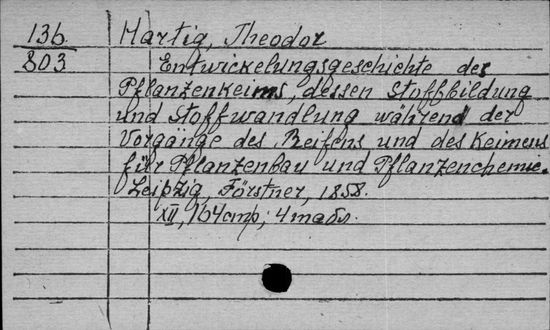 136 Hartig, Theodor
803 Entwickelungsgeschichte des
Pflanzenkeims, dessen Stoffbildung
und Stoffwandlung während der
Vorgänge des Reifens und des Keimens
für Pflanzenbau und Pflanzenchemie.
Leipzig, Förstner, 1858.
XII, 164 стр; 4 табл.